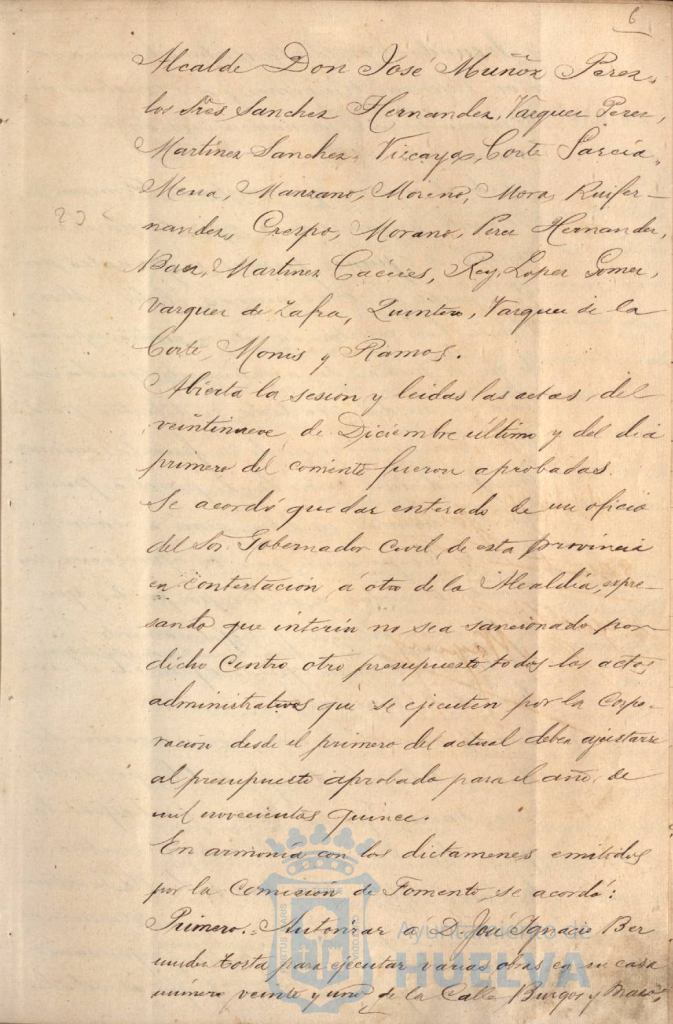 6
Alcalde Don José Muñoz Perez,
los Sres Sanchez Hernandez, Vazquez Perez,
Martinez Sanchez, Vizcaya, Corte Garcia,
Mena, Manzano, Moreno, Mora, Ruifer-
nandez, Crespo, Morano, Perez Hernandez,
Baez, Martinez Caceres, Rey, Lopez Gomez,
Vazquez de Zafra, Quintero, Vazquez de la
Corte, Monis y Ramos.
Abierta la sesion y leidas las actas, del
veintinueve de Diciembre último y del dia
primero del corriente fueron aprobadas.
Se acordó quedar enterado de un oficio
del Sor. Gobernador Civil de esta provincia
en contestación á otro de la Alcaldia, expre-
sando que interin no sea sancionado por
dicho Centro otro presupuesto todos los actos
administrativos que se ejecuten por la Corpo-
ración desde el primero del actual deben ajustarse
al presupuesto aprobado para el año de
mil novecientos quince.
En armonía con los dictamenes emitidos
por la Comisión de Fomento, se acordó:
Primero.- Autorizar a D. José Ignacio Ber
mudez Costa para ejecutar varias obras en su casa
número veinte y uno, de la Calle Burgos y
Ayuntamiento de
HUELVA